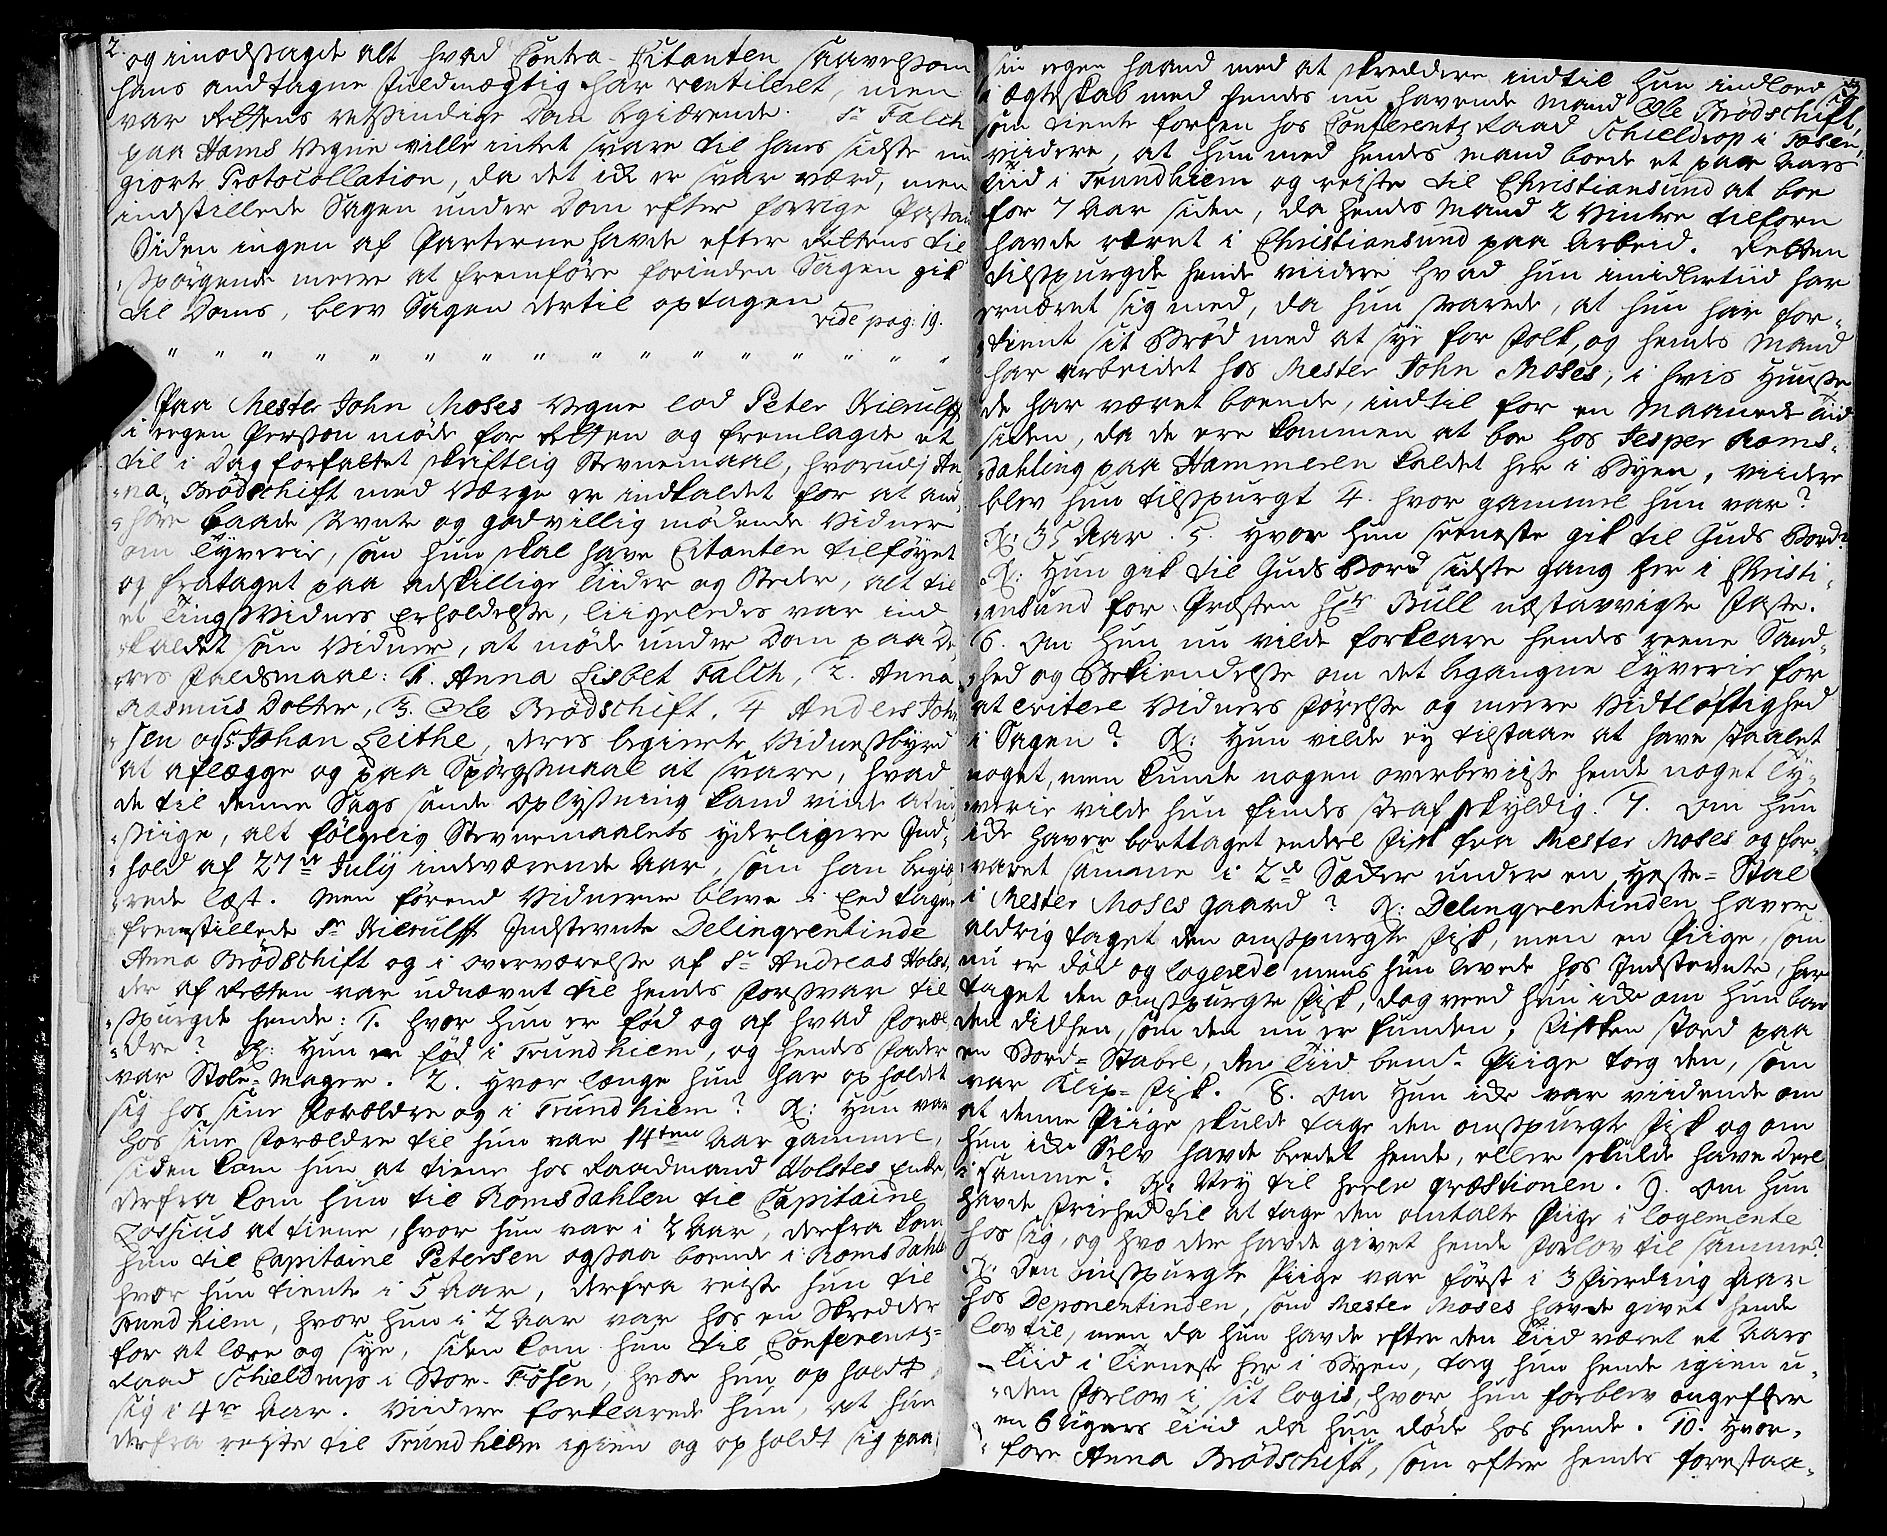 2.
og imodsagde alt hvad Contra-Citanten saavelsom
hans andtagne Fuldmægtig har ventileret, men
var Rettens retsindige Dom begiærende. Sr Falch
paa Hams Vegne ville intet svare til hans sidste nu
giorte Protocollation, da det ike er svar værd, men
indstillede Sagen under Dom efter forrige Paastand
Siden ingen af Parterne havde efter Rettens til
spörgende meere at fremföre forinden Sagen gik
til Doms, blev Sagen dertil optagen
vide pag: 19.
Paa Mester John Moses Vegne lod Peter Kierulff
i egen Person møde for Retten og fremlagde et
til i Dag forfattet skriftlig Stevnemaal, hvorudj An-
na Brödschift med Værge er indkaldet for at an-
höre baade stevnte og godvillig mødende Vidner
om Tyverie, som hun skal have Citanten tilføyet
og frataget paa adskillige Tiider og Steder, alt til
et TingsVidnes Erholdelse, liigeledes var ind-
kaldet som Vidner, at møde under Dom paa De-
res Faldsmaal: 1. Anna Lisbet Falch, 2. Anna
Rasmus Dotter, 3. Ole Brödschift, 4 Anders John-
sen og 5 Johan Leithe, deres begierte Vidnesbyrd
at aflægge og paa Spörgsmaal at svare, hvad
de til denne Sags sande Oplysning kand vide at ud-
siige, alt følgelig Stevnemaalets yderligere Ind-
hold af 27de July indeværende Aar, som han begie-
rede læst. Men förend Vidnerne bleve i Eed tagne
fremstillede Sr Kierulff Indstevnte Delinqventinde
Anna Brödschift og i overværelse af Sr Andreas Holst,
der af Retten var udnævnt til hendes Forsvar til
spurgte hende: 1. hvor hun er föd og af hvad Foræl-
dre? R: Hun er föd i Trundhiem, og hendes Fader
var Stole-Mager. 2. Hvor længe hun har opholdet
sig hos sine Forældre og i Trundhiem? R: Hun var
hos sine Forældre til hun var 14ten Aar gammel,
siden kom hun at tiene hos Raadmand Holstes Enke,
derfra kom hun til Romsdahlen til Capitaine
Lossius at tiene, hvor hun var i 2 Aar, derfra kom
hun til Capitaine Petersen ogsaa boende i Romsdahlen
hvor hun tiente i 5 Aar, derfra reiste hun til
Trundhiem, hvor hun i 2 Aar var hos en Skredder
for at lære og sye, siden kom hun til Conferentz-
Raad Schieldrup i Stor-Fosen, hvor hun opholdt
sig i 4re Aar. Viidere forklarede hun, at hun
derfra reiste til Trundhiem igien og opholdt sig paa
sin egen haand med at skreddere indtil hun indlod sig
i Ægteskab med hendes nu havende Mand Ole Brödschift,
som tiente forhen hos Conferentz Raad Schieldrop i Fosen,
viidere, at hun med hendes Mand boede et par Aars
Tiid i Trundhiem og reiste til Christiansund at boe
for 7 Aar siden, da hendes Mand 2 Vintre tilforn
havde været i Christiansund paa Arbeid. Retten
tilspurgde hende viidere hvad hun imidlertiid har
ernæret sig med, da hun svarede, at hun har for-
tient sit Bröd med at sye for Folk, og hendes Mand
har arbeidet hos Mester John Moses, i hvis Huuse
de har været boende, indtil for en Maaneds Tiid
siden, da de ere kommen at boe hos Jesper Roms-
dahling paa Hammeren kaldet her i Byen, viidere
blev hun tilspurgt 4. hvor gammel hun var?
R: 35 Aar. 5. Hvor hun seeneste gik til Guds Bord?
R: Hun gik til Guds Bord sidste gang her i Christi-
ansund for Præsten Hr Bull næstavvigte Faste.
6. Om Hun nu vilde forklare hendes reene Sand-
hed og Bekiendelse om det begangne Tyverie for
at evitere Vidners Förelse og meere Vidtløftighed
i Sagen? R: Hun vilde ey tilstaae at have staalet
noget, men kunde nogen overbeviise hende noget Ty-
verie vilde hun findes straf skyldig. 7. Om hun
ike haver borttaget endeel Fisk fra Mester Moses og for-
varet samme i 2de Sæker under en Heste-Stal
i Mester Moses gaard? R: Delinqventinden haver
aldrig taget den omspurgte Fisk, men en Piige, som
nu er död og logerede mens hun levede hos Indstevnte, har
taget den omspurgte Fisk, dog veed hun ike om hun bar
den didhen, som den nu er funden; Fisken stoed paa
en Bord-Stabel, den Tiid bemte Piige tog den, som
var Klip-Fisk. 8. Om Hun ike var viidende om
at denne Piige skulde tage den omspurgte Fisk og om
hun ike Selv havde beedet hende, eller skulde have Deel
i samme? R: Ney til heele qvæstionen. 9. Om hun
havde Friehed til at tage den omtalte Piige i logemente
hos sig, og hvo der havde givet hende Forlov til samme?
R: Den omspurgte Piige var först i 3 Fierding Aar
hos Deponentinden, som Mester Moses havde givet hende
lov til, men da hun havde efter den Tiid været et Aars
Tiid i Tieneste her i Byen, tog hun hende igien u-
den Forlov i sit logis, hvor hun forblev ongefehr
en 6 Ugers Tiid da hun döde hos hende. 10. Hvor-
fore Anna Brödschift, som efter hendes forestaa-